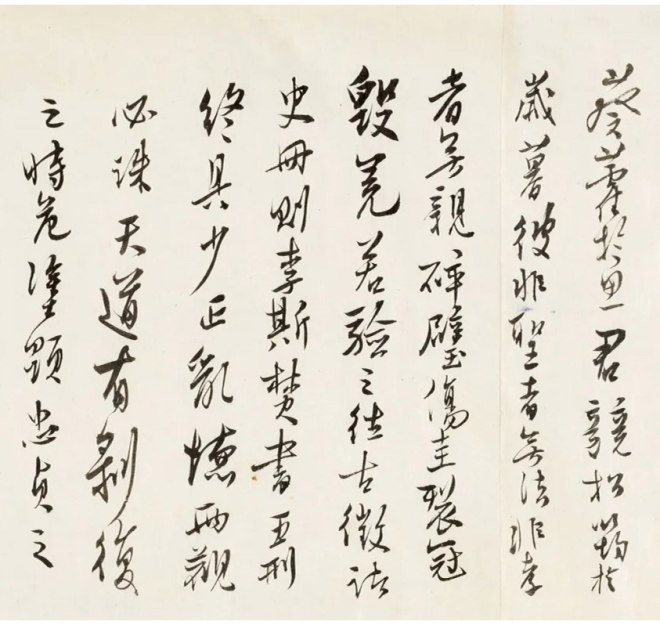 葵藿於思君競松筠於
歲暮彼非聖者無法非孝
者無親碎璧傷圭裂冠
毀冕若驗之往古徵諸
史冊則李斯焚書五刑
終具少正亂德兩觀
必誅天道有剝復
之時危涂顯忠貞之